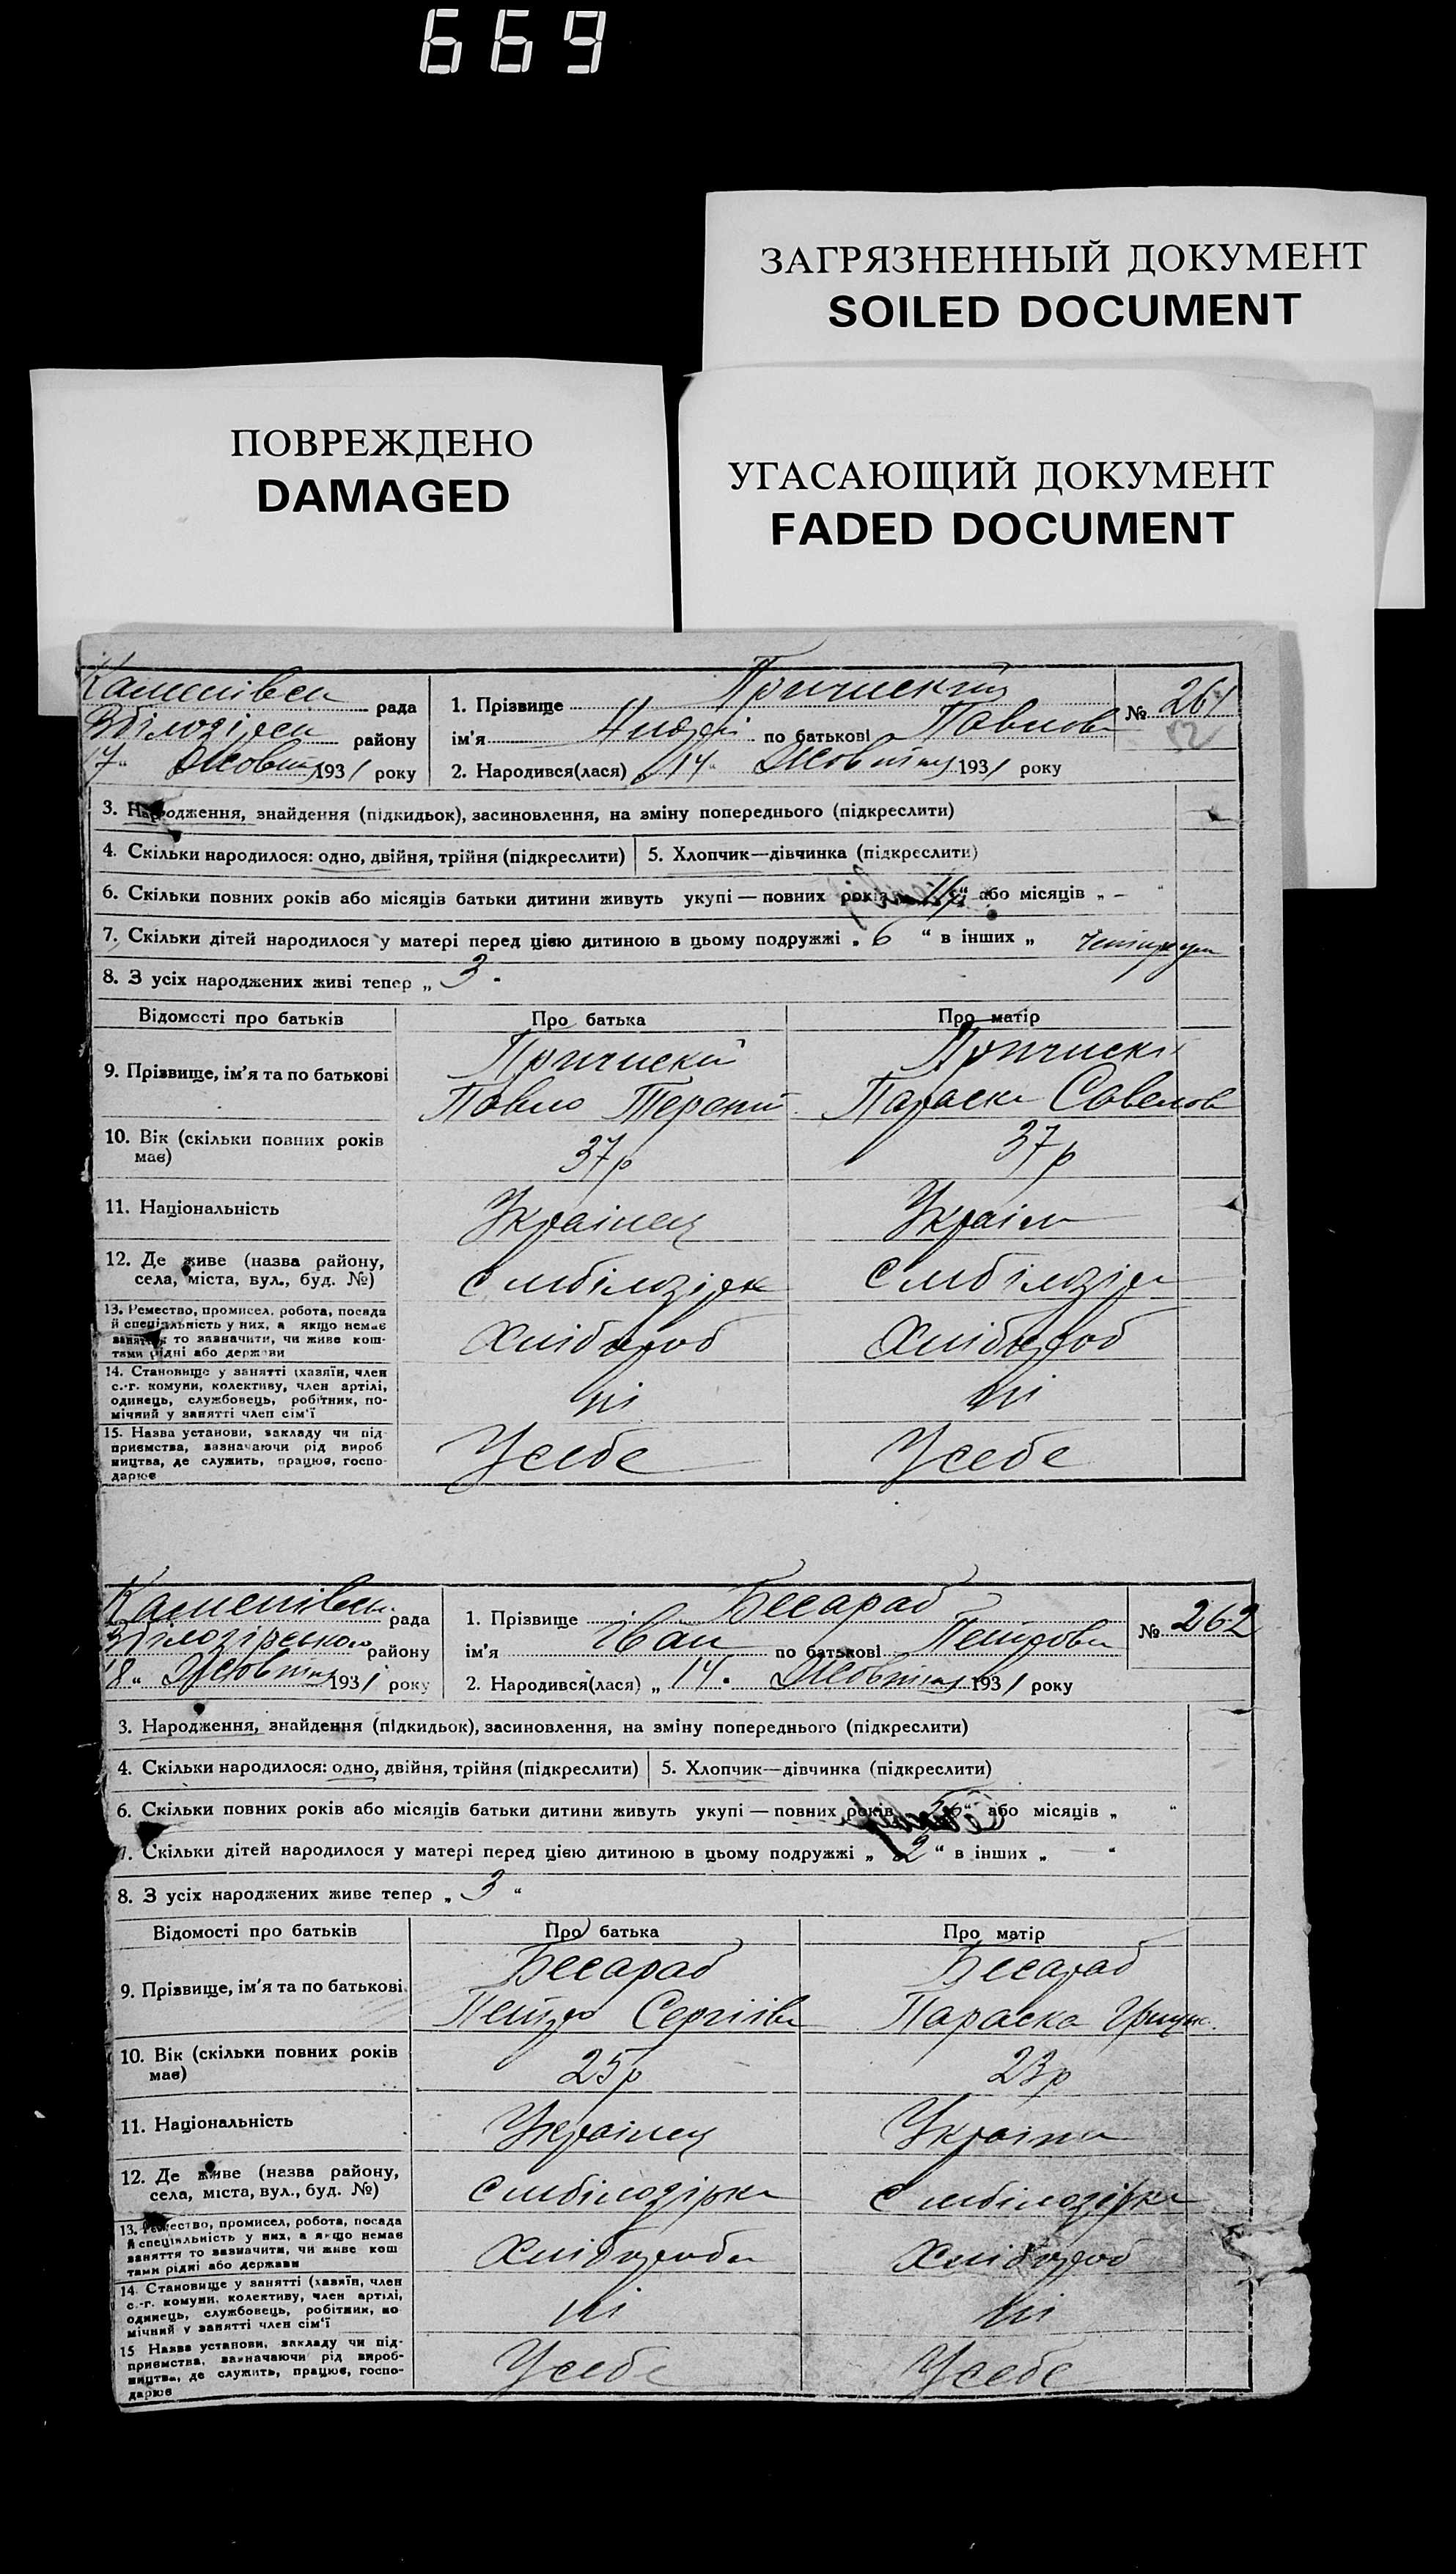 669
ЗАГРЯЗНЕННЫЙ ДОКУМЕНТ
SOILED DOCUMENT
ПОВРЕЖДЕНО
DAMAGED
УГАСАЮЩИЙ ДОКУМЕНТ
FADED DOCUMENT
рада
району
17 " Жовтня 1931 року
1. Прізвище
№ 261
52
ім'я по батькові Павлов
2. Народився(лася) „ 14 " Жовтня 1931 року
3. Народження, знайдення (підкидьок), засиновлення, на зміну попереднього (підкреслити)
4. Скільки народилося: одно, двійня, трійня (підкреслити) 5. Хлопчик—дівчинка (підкреслити)
6. Скільки повних років або місяців батьки дитини живуть укупі — повних років або місяців „ – “
7. Скільки дітей народилося у матері перед цією дитиною в цьому подружжі „ 6 “ в інших „
8. З усіх народжених живі тепер „ 3 "
Відомости про батьків Про батька Про матір
9. Прізвище, ім'я та по батькові
Павло Параска
10. Вік (скільки повних років має) 37 р 37 р
11. Національність Українец Україн
12. Де живе (назва району, села, міста, вул., буд. №)
13. Ремество, промисел, робота, посада й спеціяльність у них, а якщо немає заняття то зазначити, чи живе коштами рідні або держави
Хлібороб Хлібороб
14. Становище у занятті (хазяїн, член с.-г. комуни, колективу, член артілі, одинець, службовець, робітник, помічний у занятті член сім'ї
ні ні
15. Назва установи, закладу чи підприємства, зазначаючи рід виробництва, де служить, працює, господарює
У себе У себе
рада
Збілозірського району
18 " Жовтня 1931 року
1. Прізвище Бесараб
№ 262
ім'я Іван по батькові Петрови
2. Народився(лася) „ 14 " Жовтня 1931 року
3. Народження, знайдення (підкидьок), засиновлення, на зміну попереднього (підкреслити)
4. Скільки народилося: одно, двійня, трійня (підкреслити) 5. Хлопчик—дівчинка (підкреслити)
6. Скільки повних років або місяців батьки дитини живуть укупі — повних років або місяців „ “
7. Скільки дітей народилося у матері перед цією дитиною в цьому подружжі „ 2 “ в інших „ — “
8. З усіх народжених живе тепер „ 3 “
Відомости про батьків Про батька Про матір
9. Прізвище, ім'я та по батькові
Бесараб Бесараб
Петро Сергіїв Параска
10. Вік (скільки повних років має) 25 р 23 р
11. Національність Українец Україн
12. Де живе (назва району, села, міста, вул., буд. №)
13. Ремество, промисел, робота, посада й спеціяльність у них, а якщо немає заняття то зазначити, чи живе коштами рідні або держави
Хлібороб Хлібороб
14. Становище у занятті (хазяїн, член с.-г. комуни, колективу, член артілі, одинець, службовець, робітник, помічний у занятті член сім'ї
ні ні
15 Назва установи, закладу чи підприємства, зазначаючи рід виробництва, де служить, працює, господарює
У себе У себе